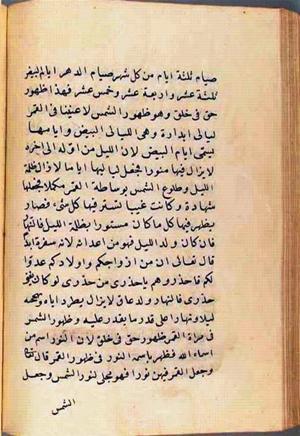 صيام ثلثة ايام من كل شهر صيام الدهر ايام البيض
ثلثة عشر واربعة عشر وخمس عشر فهذا ظهور
حق فى خلق وهو ظهور الشمس لاعيننا فى القمر
ليالى ابداره وهى الليالى البيض وايامها
تسمى ايام البيض لان الليل من اوله الى اخره
لا يزال فيها منورا فجعل لياليها اياما لازالة ظلمة
الليل وطلوع الشمس بوساطة القمر مكملا فجعلها
شهادة وكانت غيبا تستتر فيها كل شىء فصار
يظهر فيها كل ما كان مستورا بظلمة الليل
فان كان ولد الليل فهو من اعدائه لانه
قال تعالى ان من ازواجكم واولادكم عدوا
لكم فاحذروهم ياحذرى من حذرى لو كان يغنى
حذرى فالنهار ولد عاق لا يزال يطرد اباه
ليلا ونهارا على قدر ما يقدر عليه وظهور الشمس
فى مراة القمر ظهور حق فى خلق لان النور اسم من
اسماء الله فظهر باسمه النور فى ظهور القمر قال تعالى
وجعل القمر فيهن نورا فهو مجلى لنور الشمس وجعل
الشمس